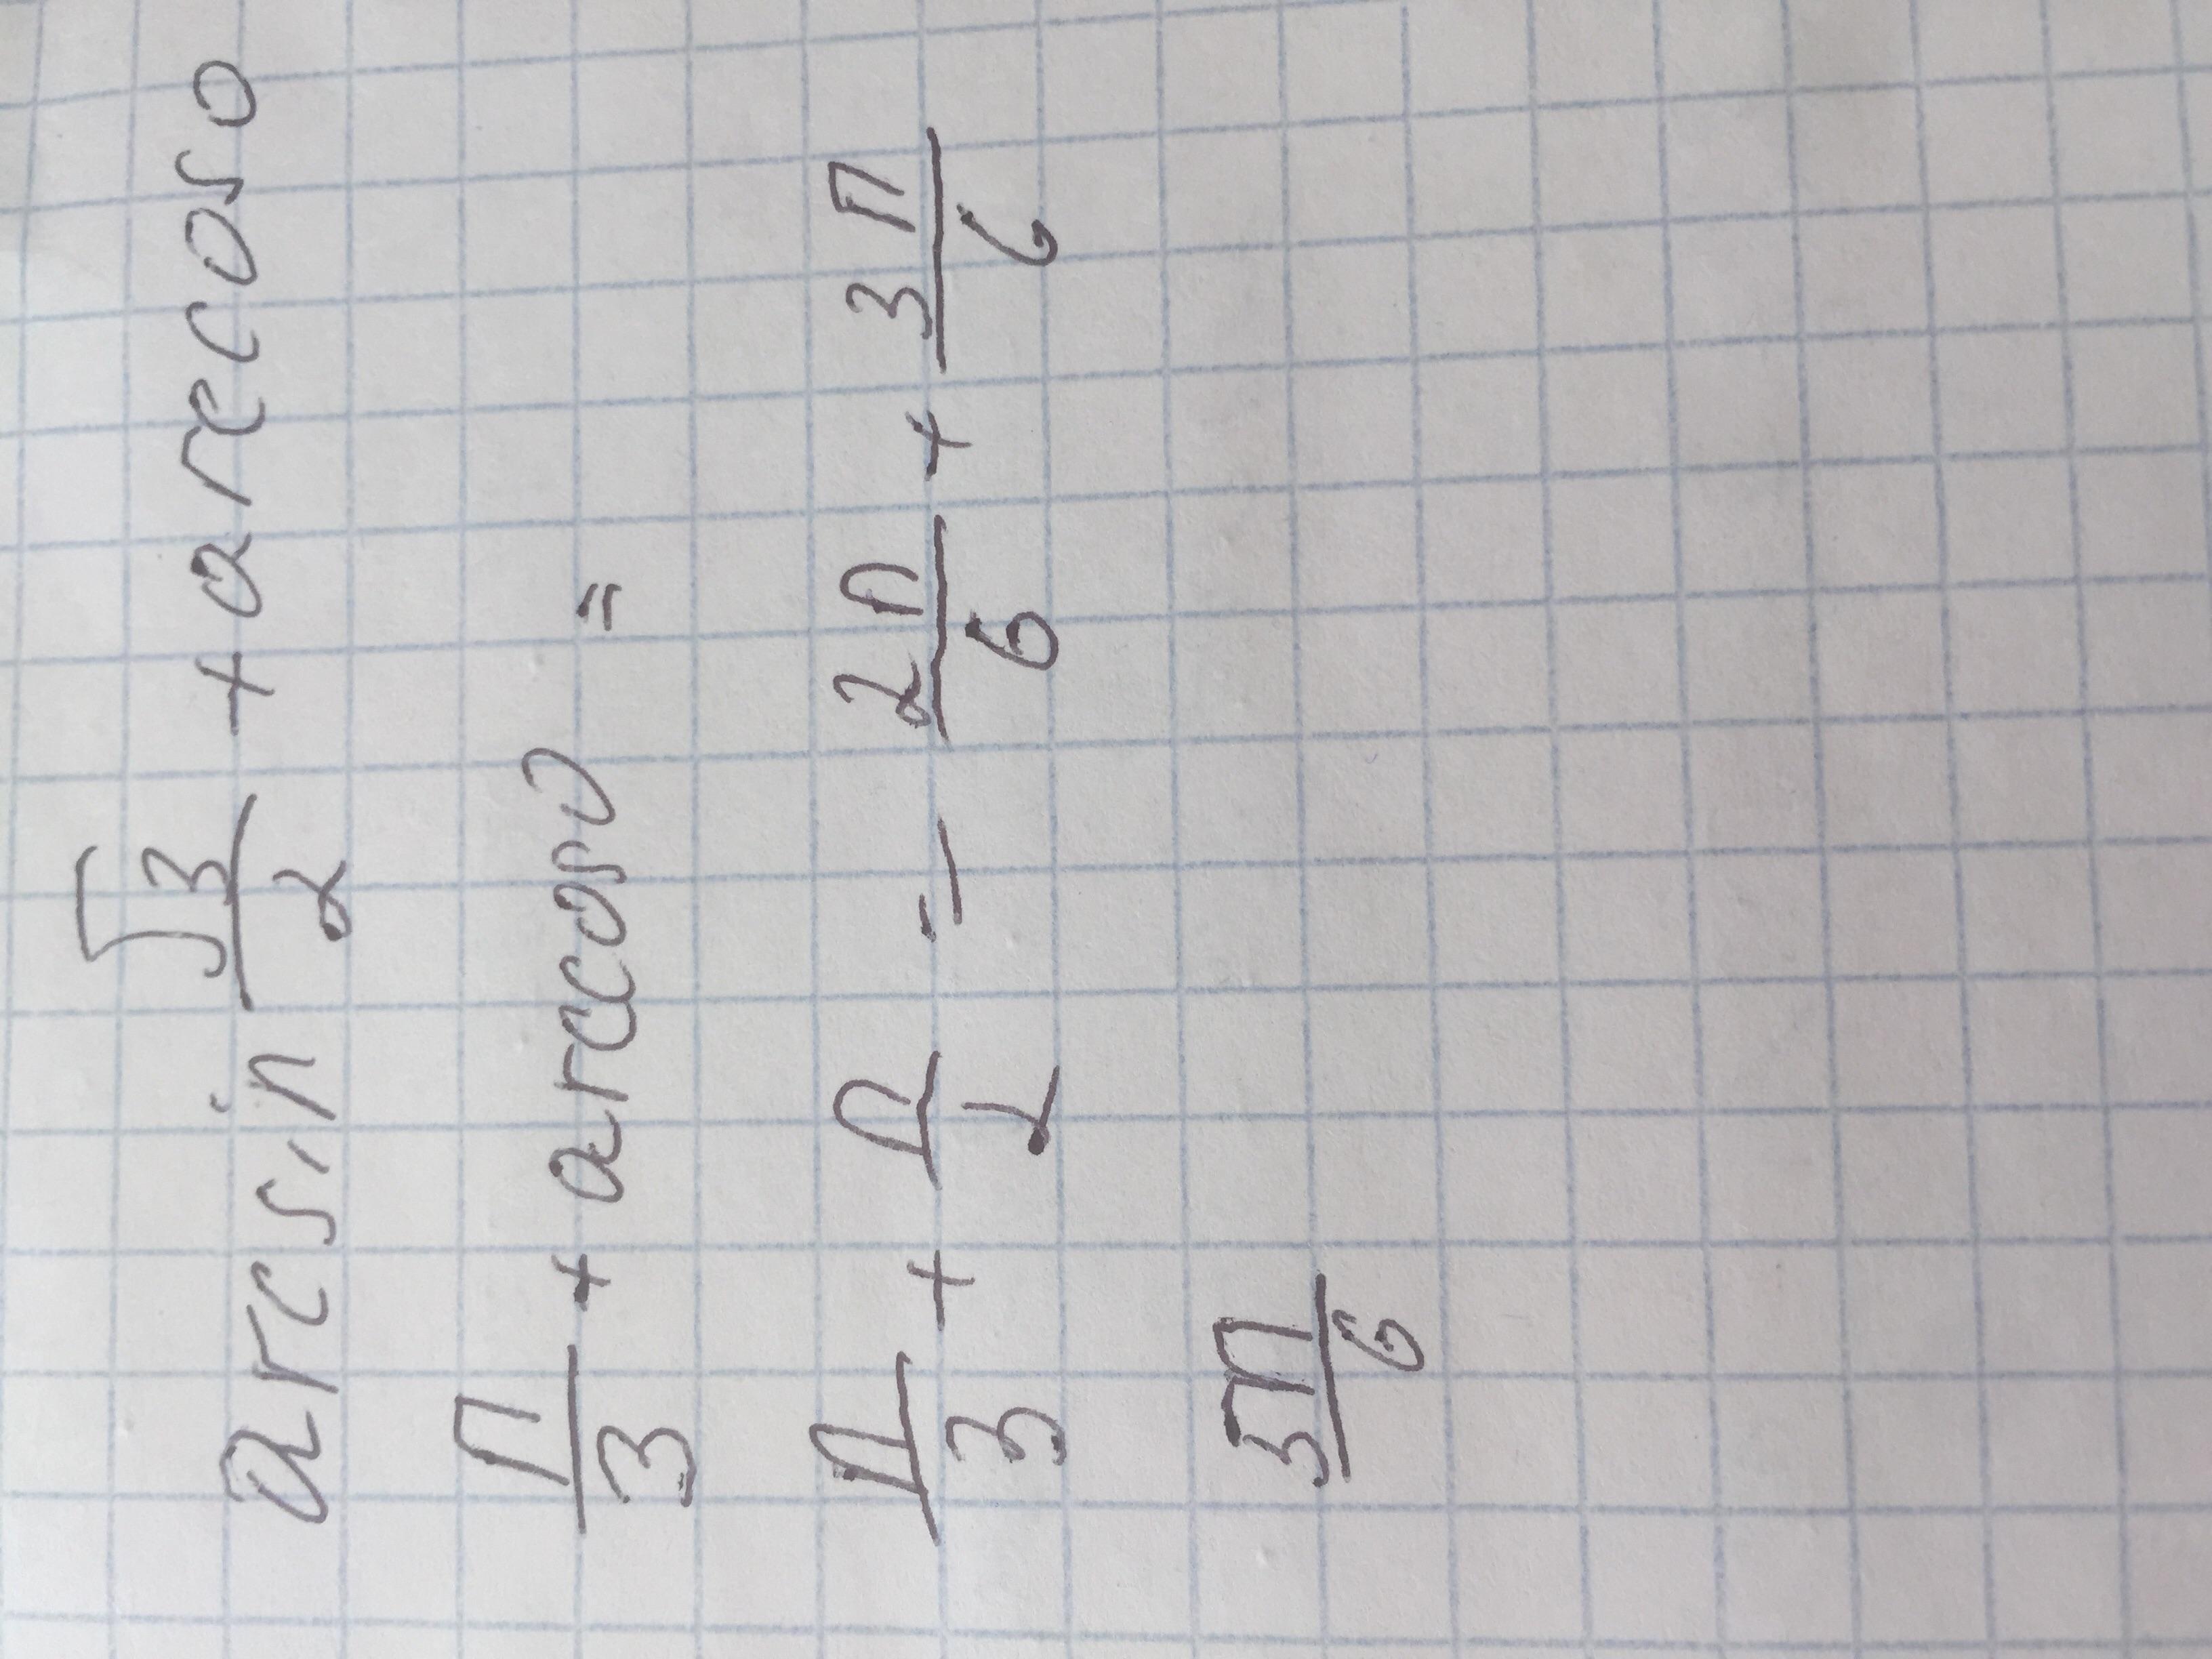 arcsin √3/2 + arccos0
П/3 + arccos0 =
П/3 + П/2 = 2П/6 + 3П/6
5П/6